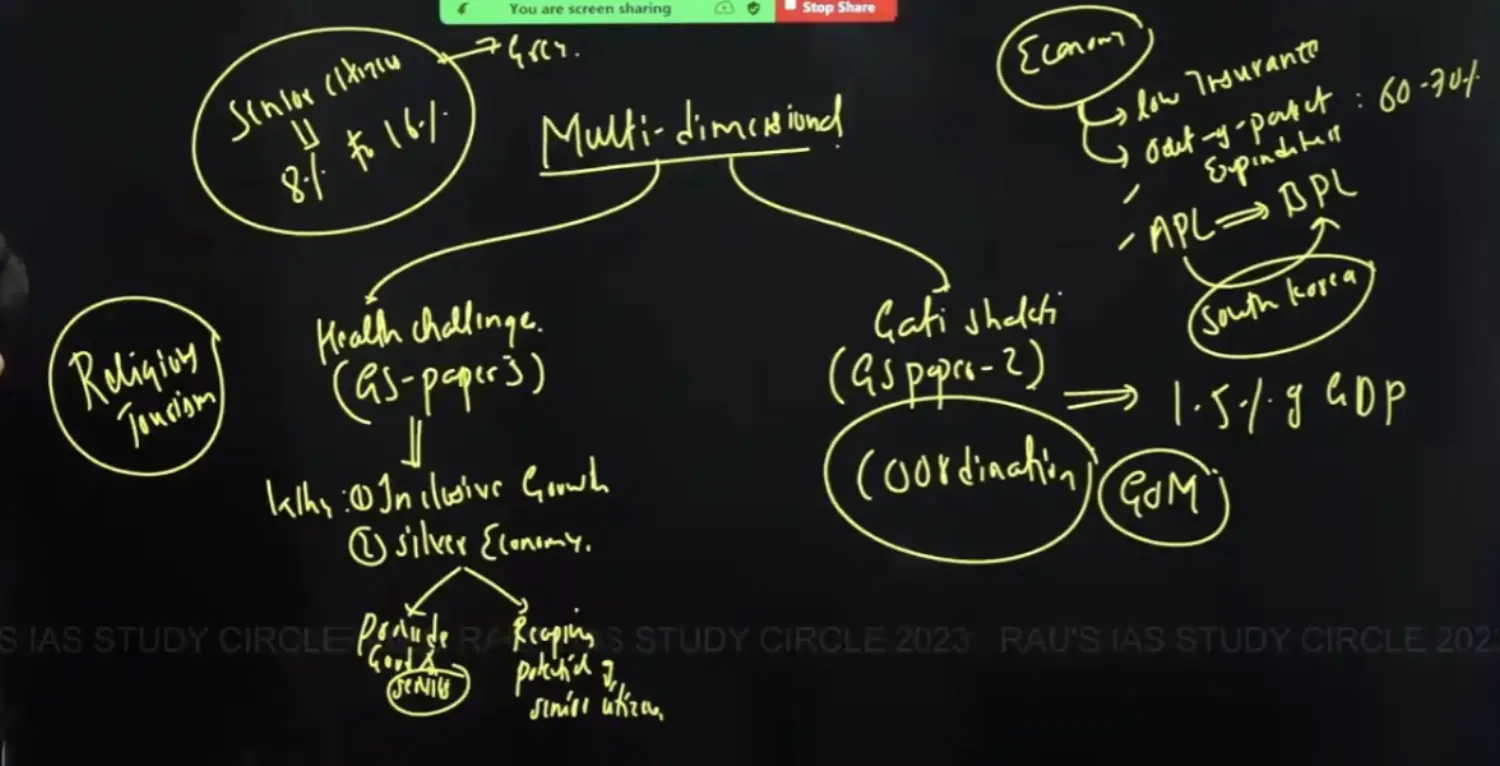 You are screen sharing
Stop Share
Senior citizens
8% to 16%
Multi-dimensional
Economy
low Insurance
Out-of-pocket : 60-70%
Expenditure
APL ⇒ BPL
South Korea
Religious
Tourism
Health challenge.
(GS-paper 3)
① Inclusive Growth
② Silver Economy.
Provide
Goods &
Services
Reaping
potential of
senior citizens
Gati Shakti
(GS paper-2)
⇒ 1.5% of GDP
Coordination
GOM
S IAS STUDY CIRCLE RAU'S IAS STUDY CIRCLE 2023 RAU'S IAS STUDY CIRCLE 202